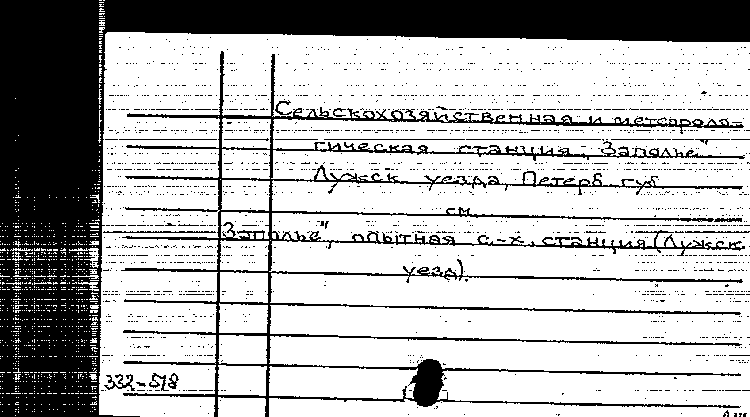 Сельскохозяйственная и метеороло-
гическая станция „Заполье"
Лужск. уезда, Петерб. губ.
см.
Заполье", опытная с.-х. станция (Лужск.
уезд).
332-518